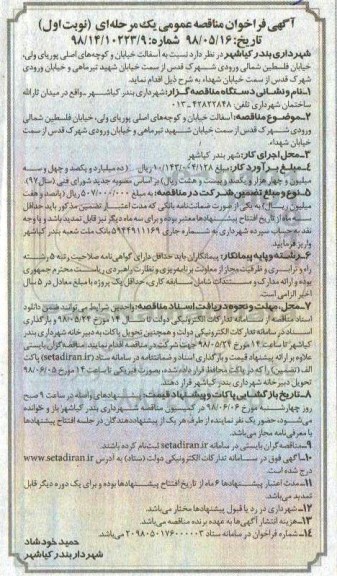 آگهی فراخوان مناقصه عمومی یک مرحله‌ای (نوبت اول)
تاریخ: ۹۸/۰۵/۱۶ شماره: ۹۸/۱۴/۱۰۲۲۳/۹
شهرداری بندر کیاشهر در نظر دارد نسبت به آسفالت خیابان و کوچه‌های اصلی پوریای ولی،
خیابان فلسطین شمالی ورودی شهرک قدس از سمت خیابان شهید تیرماهی و خیابان ورودی
شهرک قدس از سمت خیابان شهداء به شرح ذیل اقدام نماید.
۱-نام و نشانی دستگاه مناقصه گزار: شهرداری بندر کیاشهر - واقع در میدان ثارالله
ساختمان شهرداری تلفن: ۴۲۸۲۲۸۴۸-۰۱۳
۲-موضوع مناقصه: آسفالت خیابان و کوچه‌های اصلی پوریای ولی، خیابان فلسطین شمالی
ورودی شهرک قدس از سمت خیابان شهید تیرماهی و خیابان ورودی شهرک قدس از سمت
خیابان شهداء.
۳-محل اجرای کار: شهر بندر کیاشهر
۴-مبلغ برآورد کار: مبلغ ۱۰/۱۴۳/۰۰۴/۱۲۸ ریال (ده میلیارد و یکصد و چهل و سه
میلیون و چهار هزار و یکصد و بیست و هشت ریال) بر اساس مصوبه جدید شورای فنی (سال ۹۷).
۵-نوع و مبلغ تضمین شرکت در مناقصه: به مبلغ ۵۰۷/۰۰۰/۰۰۰ ریال (پانصد و هفت
میلیون ریال) به یکی از صورت ضمانت‌نامه بانکی که مدت اعتبار تضمین مذکور باید حداقل
سه ماه از تاریخ افتتاح پیشنهادها معتبر بوده و برای سه ماه دیگر نیز قابل تمدید باشد و یا وجه
نقد به حساب سپرده شهرداری به شماره جاری ۵۹۴۴۹۱۱۱۶۹ بانک ملت شعبه بندر کیاشهر
واریز فرمایید.
۶-رشته و پایه پیمانکار: پیمانکاران باید حداقل دارای گواهی‌نامه صلاحیت رتبه ۵ رشته
راه و ترابری و ظرفیت مجاز از معاونت برنامه‌ریزی و نظارت راهبردی ریاست محترم جمهوری
بوده و ارائه مدارک و مستندات شامل سابقه کاری، حداقل یک پروژه با مبلغ معادل در ۵ سال
اخیر الزامی است.
۷-محل، مهلت و نحوه دریافت اسناد مناقصه: واجدین شرایط می‌توانند ضمن دانلود
اسناد مناقصه از سامانه تدارکات الکترونیکی دولت تا ساعت ۱۴ مورخ ۹۸/۰۵/۲۴ و بارگذاری
اسناد در سامانه تدارکات الکترونیکی دولت و همچنین تحویل پاکات به دبیرخانه شهرداری بندر
کیاشهر تا ساعت ۱۴ مورخ ۹۸/۰۵/۲۴ جهت شرکت در مناقصه اقدام نمایند. مناقصه‌گران بایستی
علاوه بر ارائه پیشنهاد قیمت و بارگذاری اسناد و ضمانتنامه در سامانه ستاد (setadiran.ir) پاکت
الف (تضمین) را که در پاکت محافظ قرار داده شده، بصورت فیزیکی تا ساعت ۱۴ مورخ ۹۸/۰۶/۰۵
تحویل دبیرخانه شهرداری بندر کیاشهر قرار دهند.
۸-تاریخ بازگشایی پاکات و پیشنهاد قیمت: پیشنهادهای واصله در ساعت ۹ صبح
روز چهارشنبه مورخ ۹۸/۰۶/۰۶ در کمیسیون مناقصه شهرداری بندر کیاشهر باز و خوانده
می‌شود، حضور یک نفر نماینده از طرف هر یک از پیشنهاددهندگان در جلسه افتتاح پیشنهادها
با معرفی‌نامه مجاز می‌باشد.
۹-مناقصه گران بایستی در سامانه setadiran.ir ثبت‌نام کرده باشند.
۱۰-آگهی فوق در سامانه تدارکات الکترونیکی دولت (ستاد) به آدرس www.setadiran.ir
درج شده است.
۱۱-مدت اعتبار پیشنهادها ۶ ماه از تاریخ افتتاح پیشنهادها بوده و برای یک دوره دیگر قابل
تمدید می‌باشد.
۱۲-شهرداری در رد یا قبول پیشنهادها مختار می‌باشد.
۱۳-هزینه انتشار آگهی‌ها به عهده برنده مناقصه می‌باشد.
۱۴-شماره فراخوان در سامانه ستاد ۲۰۹۸۰۵۰۱۷۶۰۰۰۰۰۳ می‌باشد.
حمید خودشاد
شهردار بندر کیاشهر